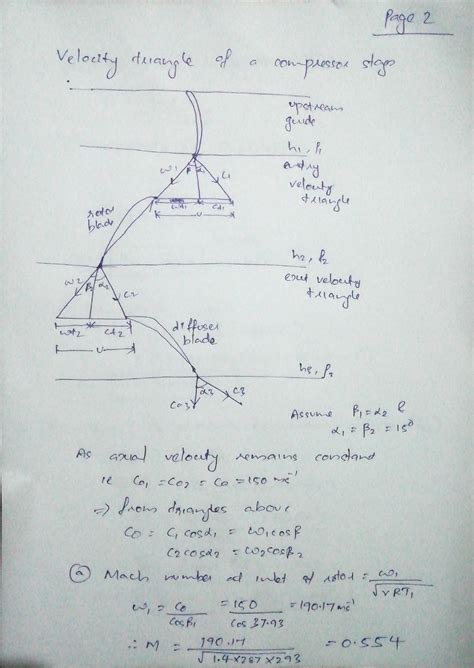 Page 2
Velocity triangle of a compressor stage
upstream
guide
h1, P1
entry
velocity
triangle
w1
β1
α1
C1
wt1
Ct1
U
rotor
blade
h2, P2
exit velocity
triangle
w2
β2
α2
C2
wt2
Ct2
U
diffuser
blade
h3, P3
α3
Ca3
C3
Assume β1 = α2 &
α1 = β2 = 15°
As axial velocity remains constant
ie Ca1 = Ca2 = Ca = 150 ms⁻¹
⇒ from triangles above
Ca = C1 cosα1 = W1cosβ
C2cosα2 = W2cosβ2
(a) Mach number at inlet of rotor = W1/√γRT1
W1 = Ca/Cosβ1 = 150/cos 37.93 = 190.17 ms⁻¹
∴ M = 190.17/√1.4×287×293 = 0.554